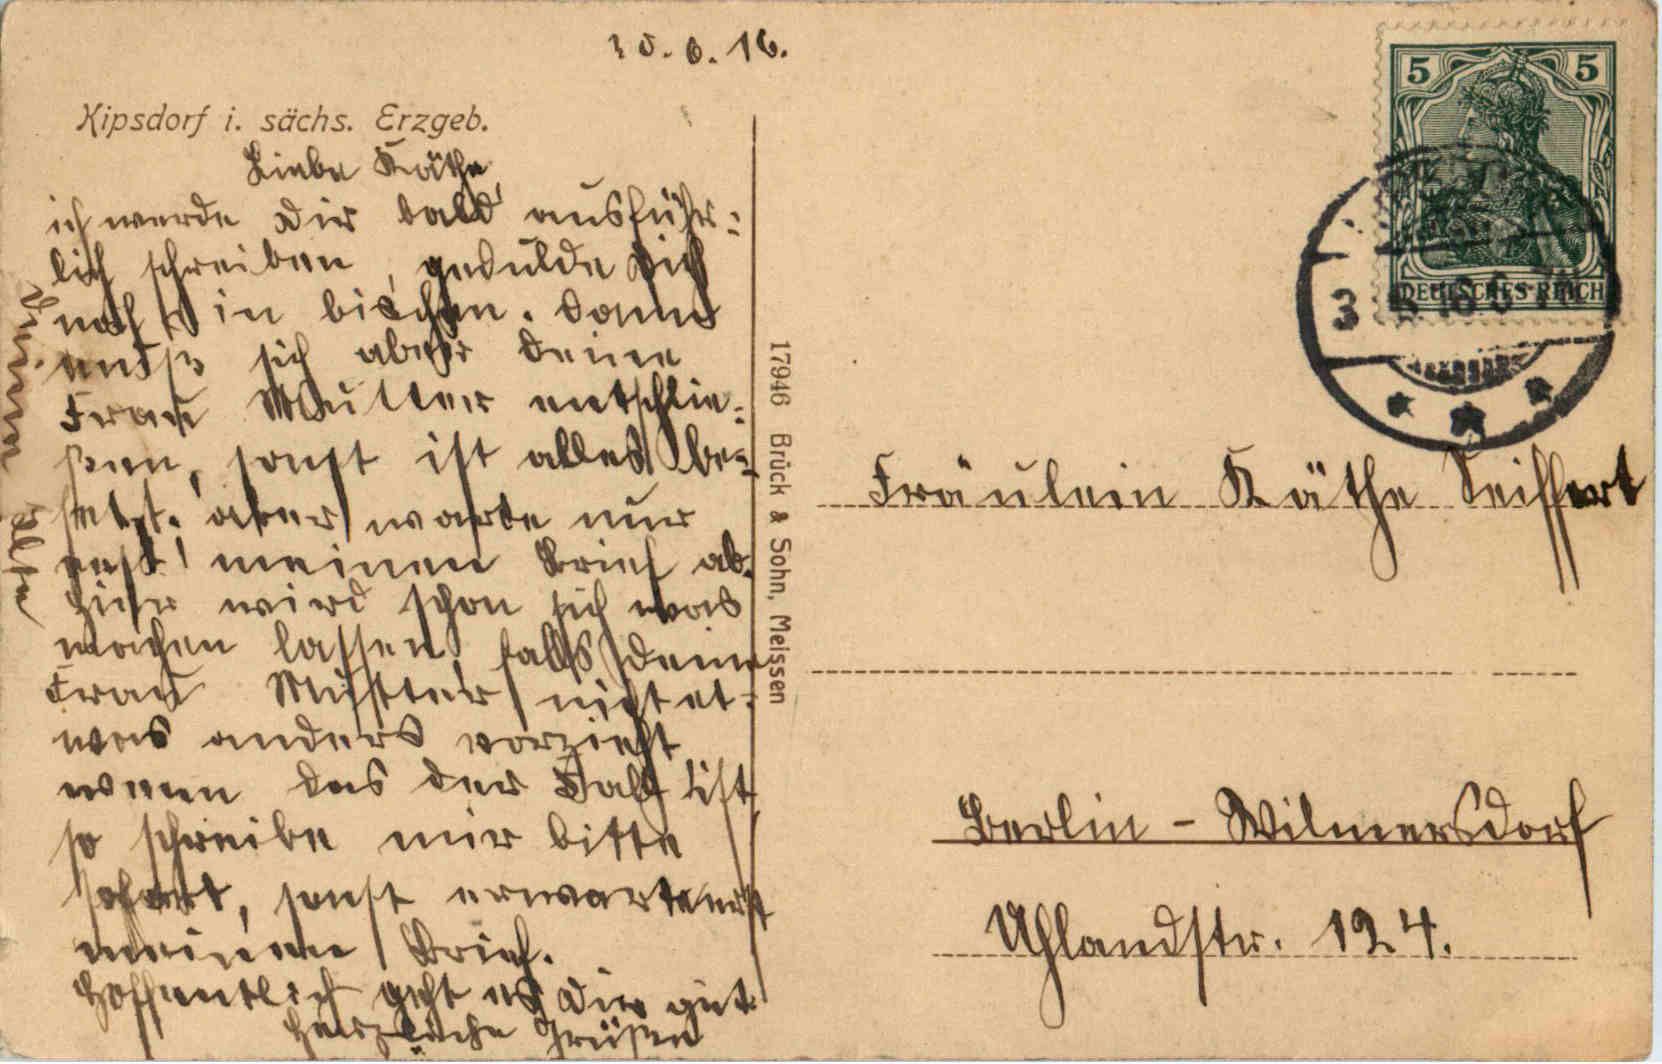 30.6.16.
Kipsdorf i. sächs. Erzgeb.
Liebe Käthe,
ich werde Dir bald ausführ-
lich schreiben, gedulde Dich
noch ein bischen. Dann
muß sich aber Deine
Frau Mutter entschlie-
ßen, sonst ist alles be-
setzt. aber warte nur
erst meinen Brief ab.
hier wird schon sich was
machen lassen, falls Deine
Frau Mutter nicht et-
was anders vorzieht
wenn das der Fall ist
so schreibe mir bitte
sofort, sonst erwarte erst
meinen Brief.
Hoffentlich geht es Dir gut
Herzliche Grüßen
Deine
17946 Brück & Sohn, Meissen
5 5
DEUTSCHES REICH
Fräulein Käthe Seiffert
Berlin - Wilmersdorf
Uhlandstr. 124.